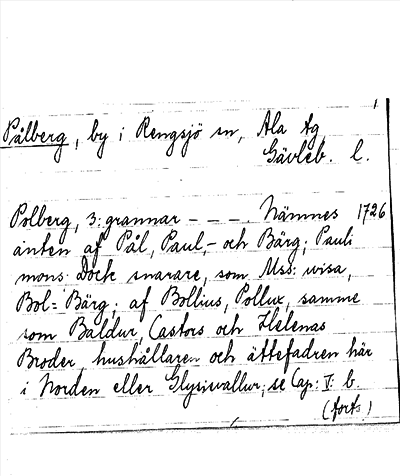 Pålberg, by i Rengsjö sn, Ala tg
Gävleb. l.
Polberg, 3: grannar - - - . Nämnes 1726
änten af Pål, Paul,- och Bärg; Pauli
mons. Dock snarare, som Mss: wisa,
Bol= Bärg; af Bollius, Pollux, samme
som Baldur, Castors och Helenas
Broder, hushållaren och ättefadren här
i Norden eller Glysisvallur; se Cap: V: b.
(forts.)